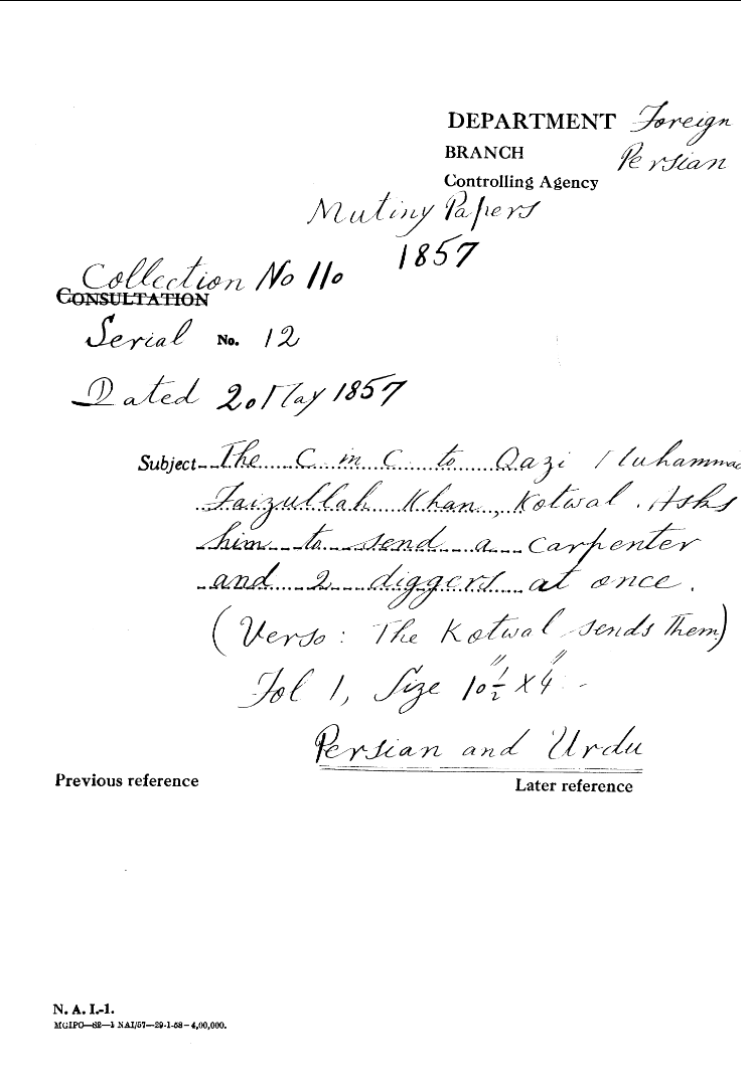 DEPARTMENT Foreign
BRANCH Persian
Controlling Agency
Mutiny Papers
1857
Collection No 110
CONSULTATION
Serial No. 12
Dated 20 May 1857
Subject The C in C to Qazi Muhammad
Faizullah Khan, Kotwal. Asks
him to send a carpenter
and 2 diggers at once.
(Verso: The Kotwal sends them)
Fol 1, Size 10½" x 4"
Persian and Urdu
Previous reference
Later reference
N. A. I.-1.
MGIPO—62—1 NAI/57—29-1-58—4,00,000.